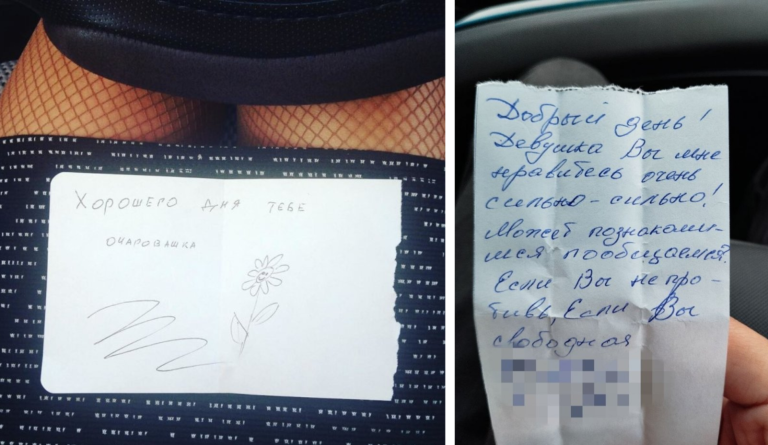 Хорошего дня тебе
очаровашка
Добрый день!
Девушка Вы мне
нравитесь очень
сильно-сильно!
Может познакоми-
мся пообщаемся?
Если Вы не про-
тивь, Если Вы
свободная